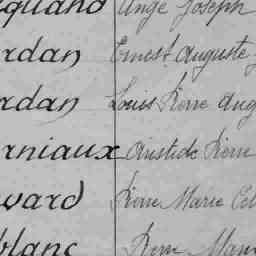 Ange Joseph
rdan Ernest Auguste
rdan Louis Pierre Aug
rniaux Aristide Pierre
ward Pierre Marie Cél
blanc Pierre Mar